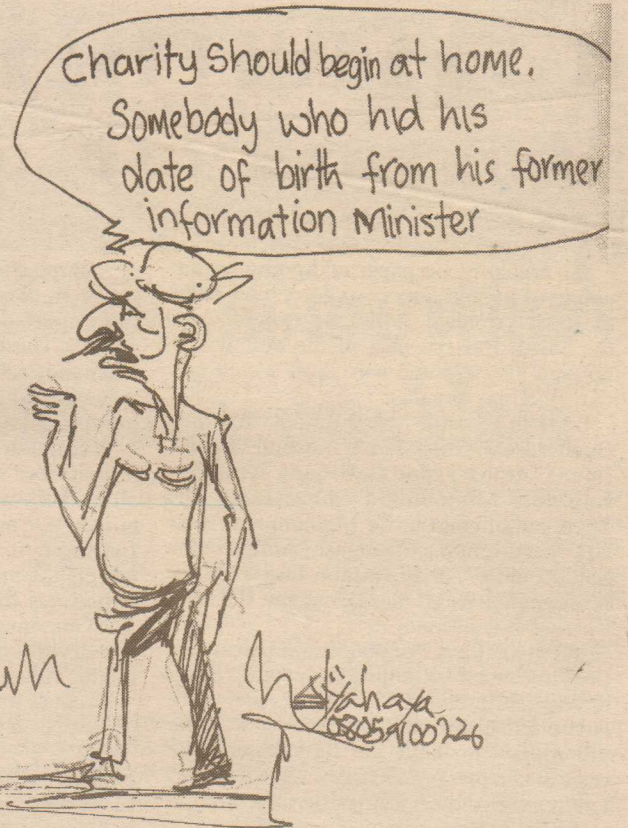 Charity Should begin at home.
Somebody who hid his
date of birth from his former
information Minister
Yahaya
08059100226